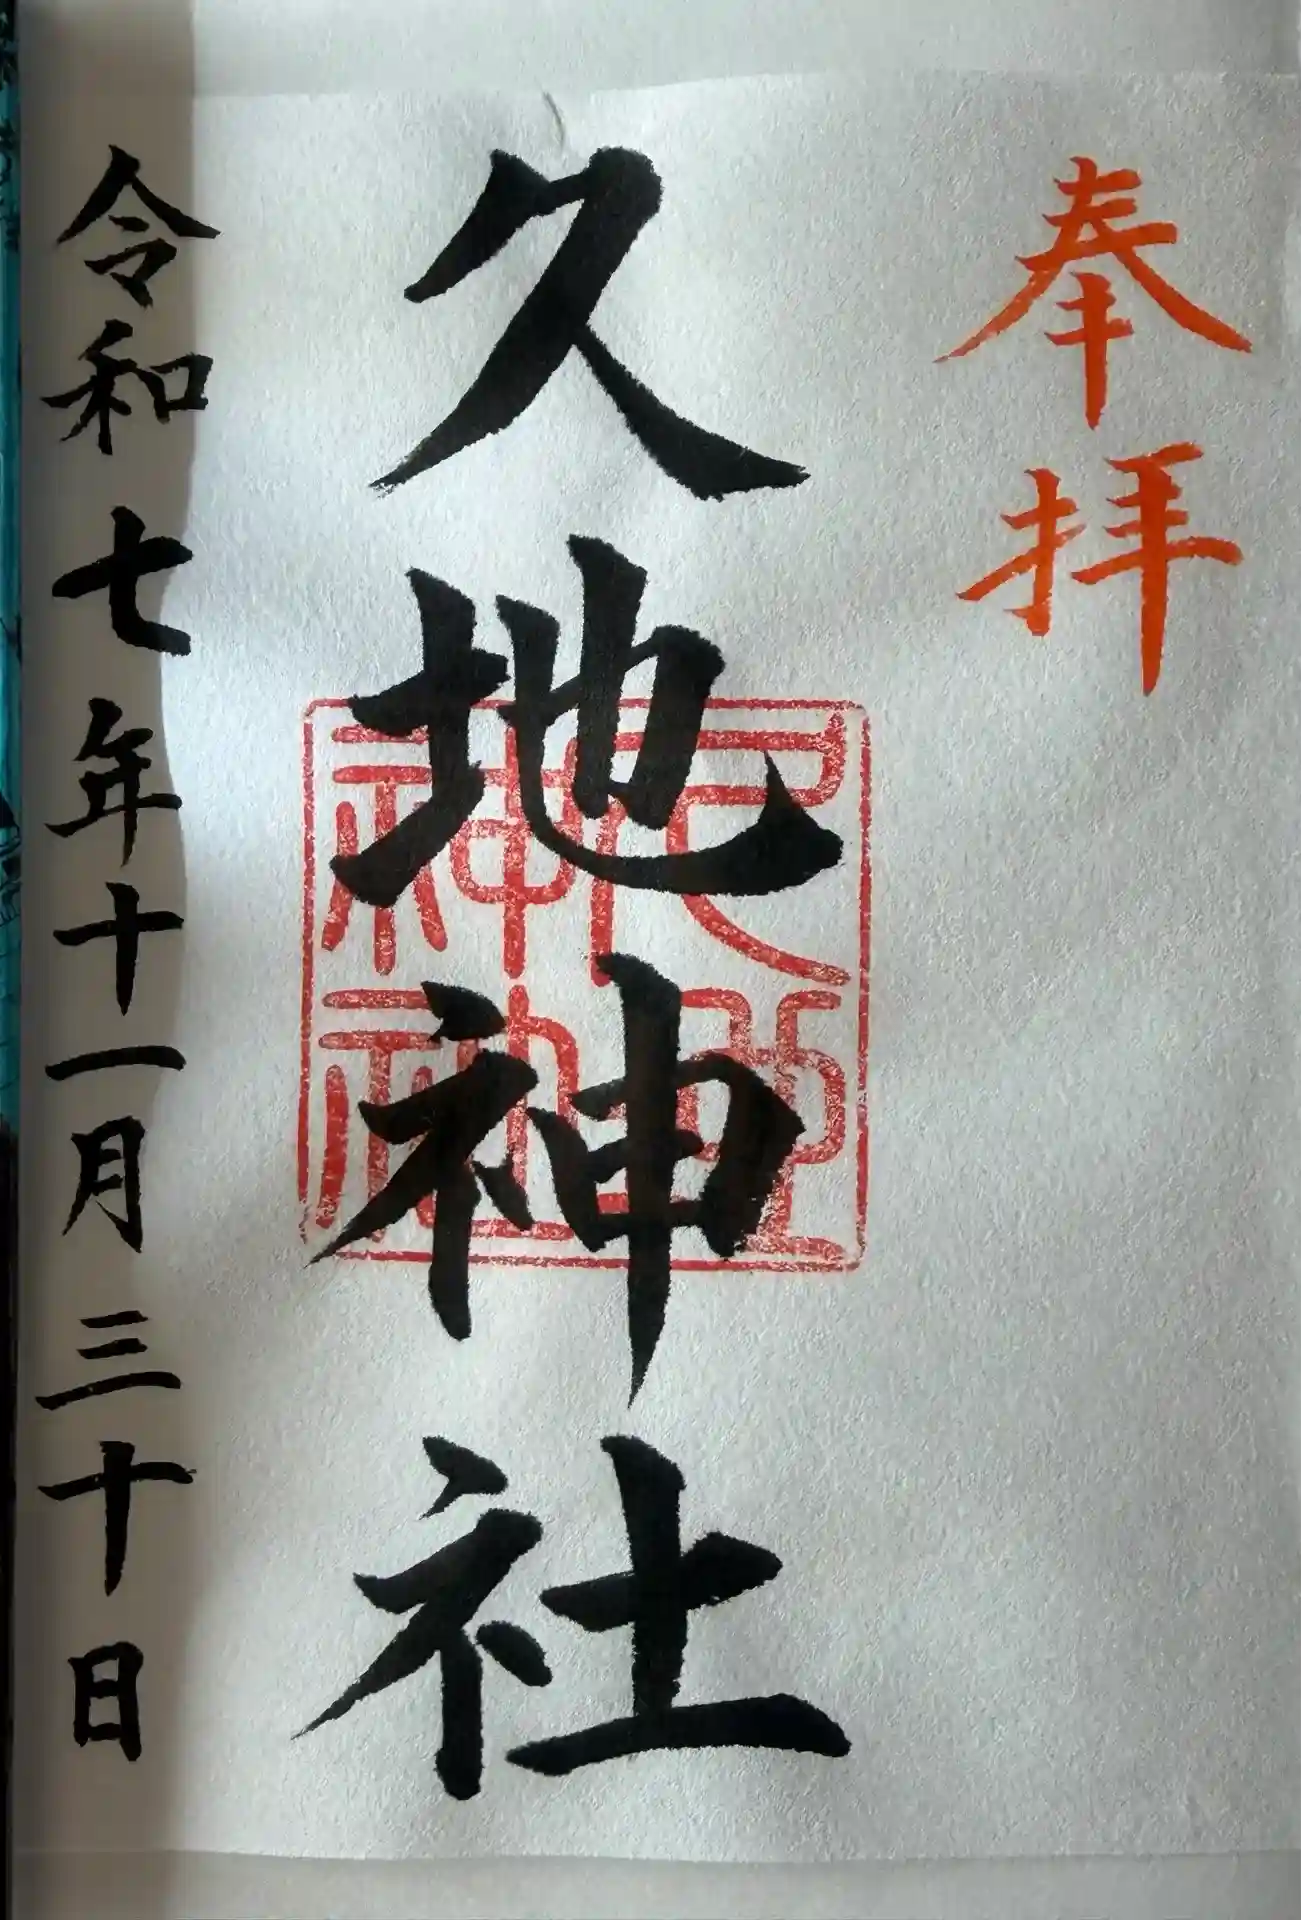 奉拝
久地神社
久地神社
令和七年十一月三十日